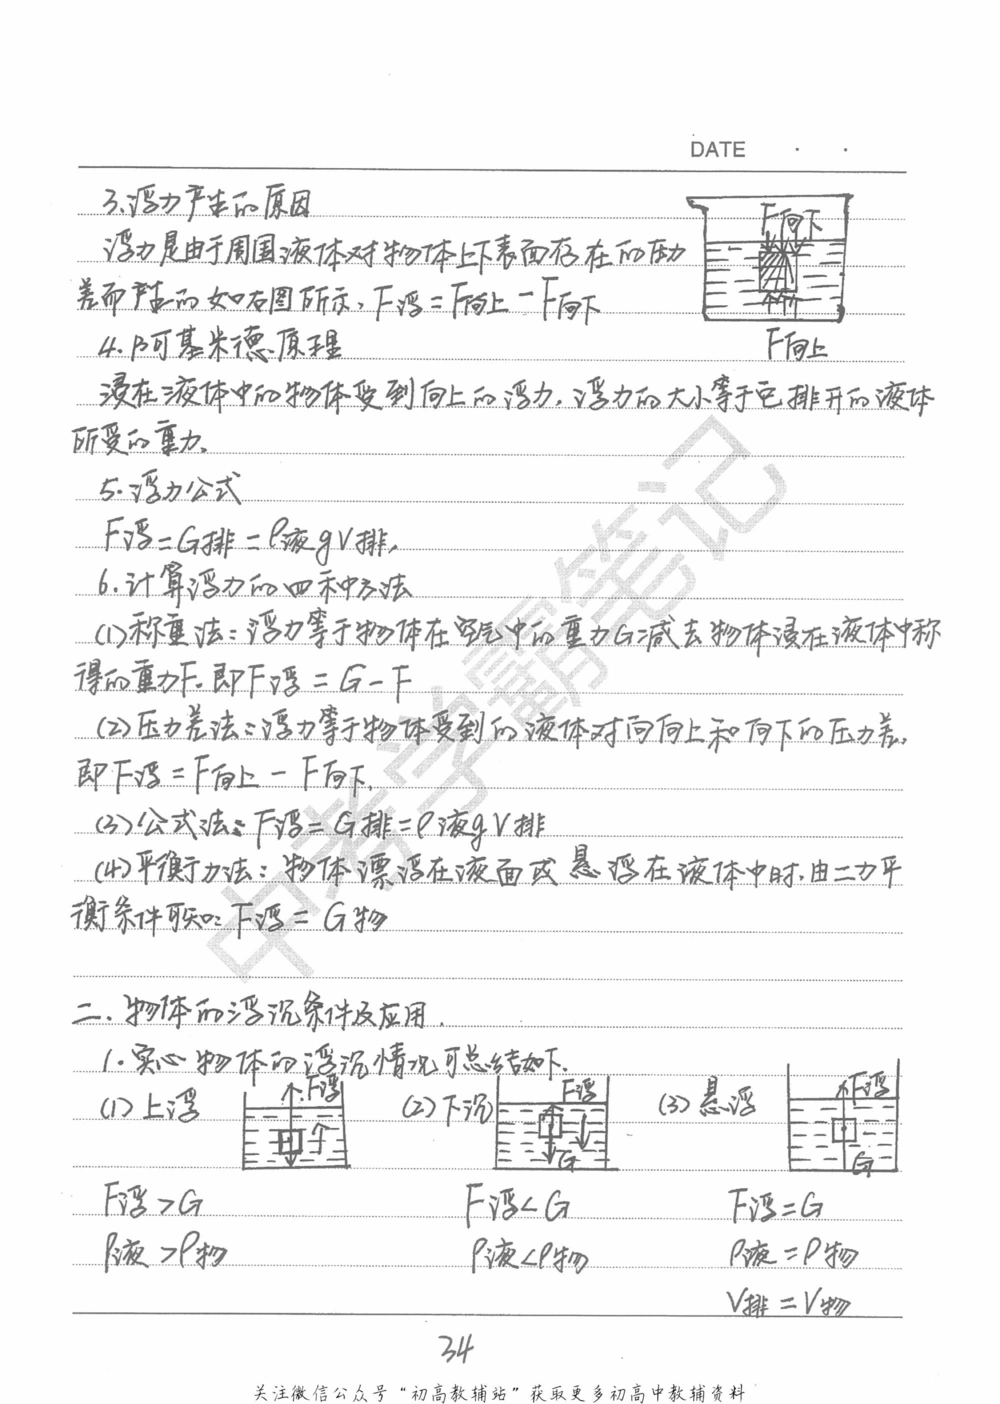 DATE · ·
3.浮力产生的原因
F向下
浮力是由于周围液体对物体上下表面存在的压力
差而产生的如右图所示,F浮=F向上-F向下
F向上
4.阿基米德原理
浸在液体中的物体受到向上的浮力,浮力的大小等于它排开的液体
所受的重力。
5.浮力公式
F浮=G排=ρ液gV排,
6.计算浮力的四种方法
(1)称重法:浮力等于物体在空气中的重力G减去物体浸在液体中称
得的重力F。即F浮=G-F
(2)压力差法:浮力等于物体受到的液体对向向上和向下的压力差,
即F浮=F向上-F向下,
(3)公式法:F浮=G排=ρ液gV排
(4)平衡力法:物体漂浮在液面或悬浮在液体中时,由二力平
衡条件可知:F浮=G物
二.物体的浮沉条件及应用.
1.实心物体的浮沉情况可总结如下.
(1)上浮 F浮 (2)下沉 F浮 G (3)悬浮 F浮 G
F浮>G F浮<G F浮=G
ρ液>ρ物 ρ液<ρ物 ρ液=ρ物
V排=V物
34
关注微信公众号“初高教辅站”获取更多初高中教辅资料
中考学霸笔记